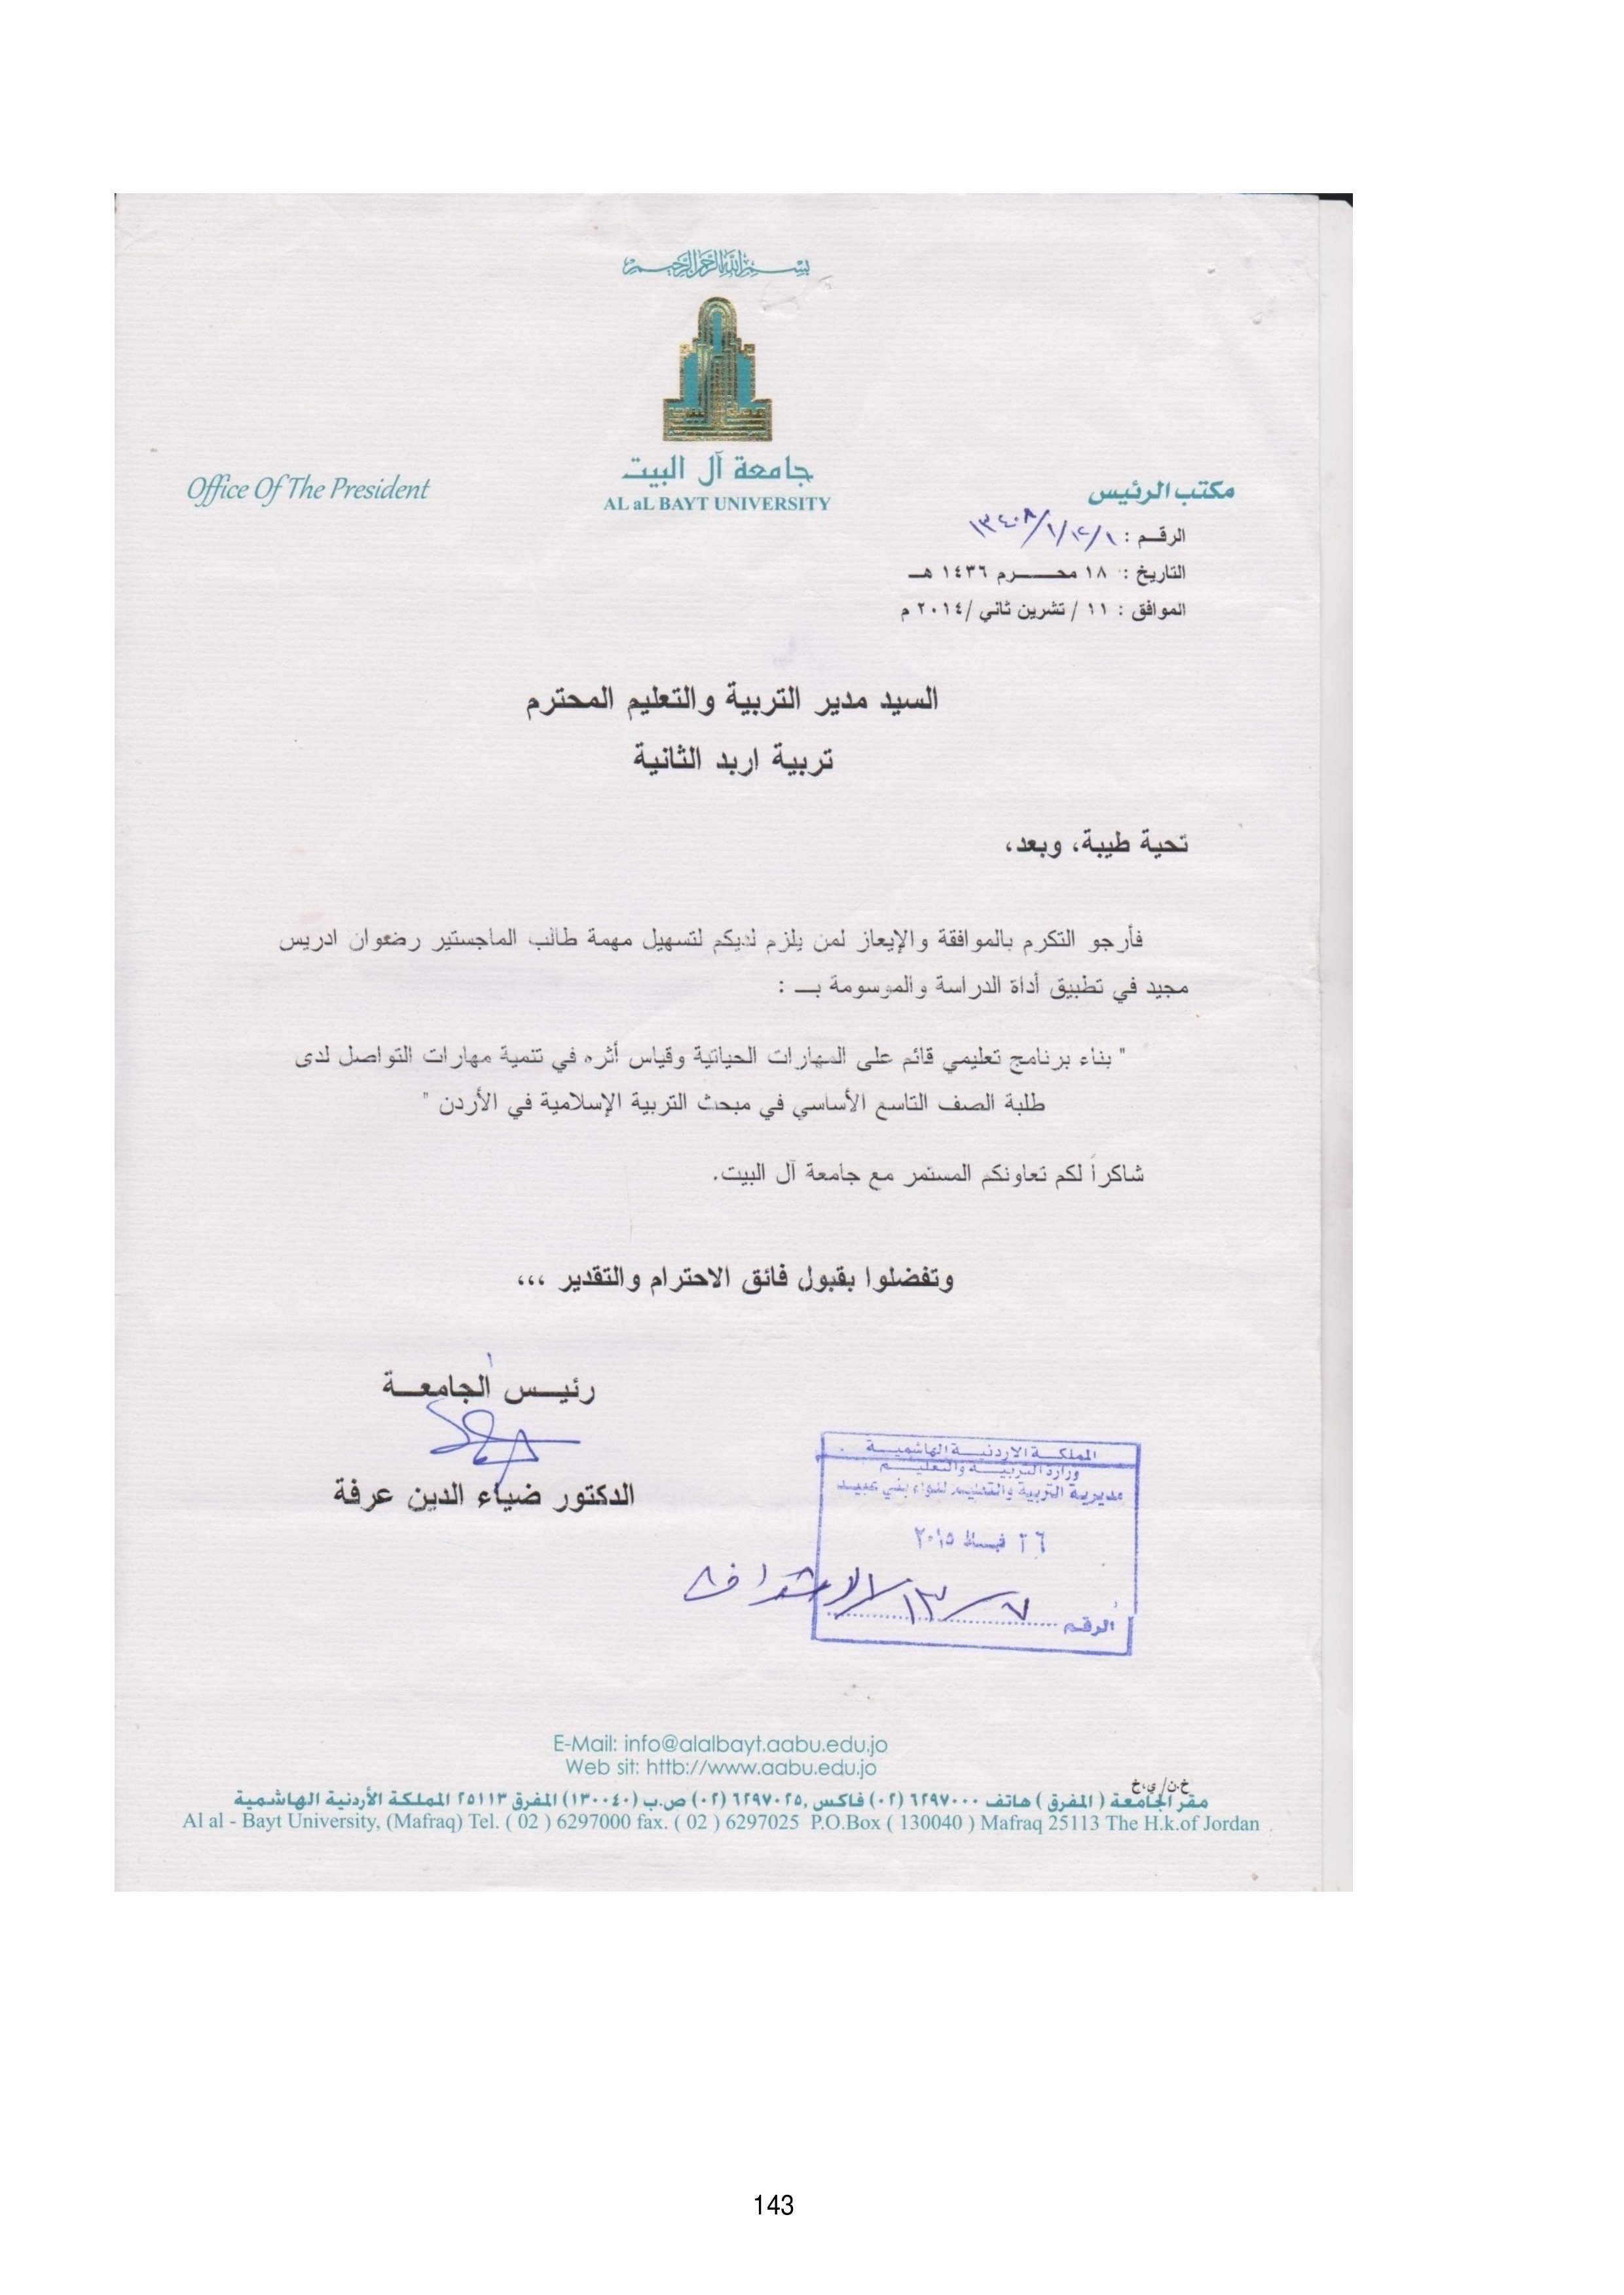 بسم الله الرحمن الرحيم
جامعة آل البيت
AL aL BAYT UNIVERSITY
Office Of The President
مكتب الرئيس
الرقـم : ١٣٤٠٨/١/١٢/١
التاريخ : ١٨ محـــــرم ١٤٣٦ هـ
الموافق : ١١ / تشرين ثاني /٢٠١٤ م
السيد مدير التربية والتعليم المحترم
تربية اربد الثانية
تحية طيبة، وبعد،
فأرجو التكرم بالموافقة والإيعاز لمن يلزم لديكم لتسهيل مهمة طالب الماجستير رضوان ادريس
مجيد في تطبيق أداة الدراسة والموسومة بـــ :
" بناء برنامج تعليمي قائم على المهارات الحياتية وقياس أثره في تنمية مهارات التواصل لدى
طلبة الصف التاسع الأساسي في مبحث التربية الإسلامية في الأردن "
شاكراً لكم تعاونكم المستمر مع جامعة آل البيت.
وتفضلوا بقبول فائق الاحترام والتقدير ،،،
رئيـــس الجامعـــة
الدكتور ضياء الدين عرفة
المملكـــة الاردنيـــة الهاشميـــة
وزارة التربيـــة والتعليـــم
مديرية التربية والتعليم للواء بني عبيـد
٢٦ شباط ٢٠١٥
الرقـم
E-Mail: info@alalbayt.aabu.edu.jo
Web sit: httb://www.aabu.edu.jo
خ.ن/ي،خ
مقر الجامعة ( المفرق ) هاتف ٦٢٩٧٠٠٠ (٠٢) فاكس ,٦٢٩٧٠٢٥ (٠٢) ص.ب (١٣٠٠٤٠) المفرق ٢٥١١٣ المملكة الأردنية الهاشمية
Al al - Bayt University, (Mafraq) Tel. ( 02 ) 6297000 fax. ( 02 ) 6297025 P.O.Box ( 130040 ) Mafraq 25113 The H.k.of Jordan
143